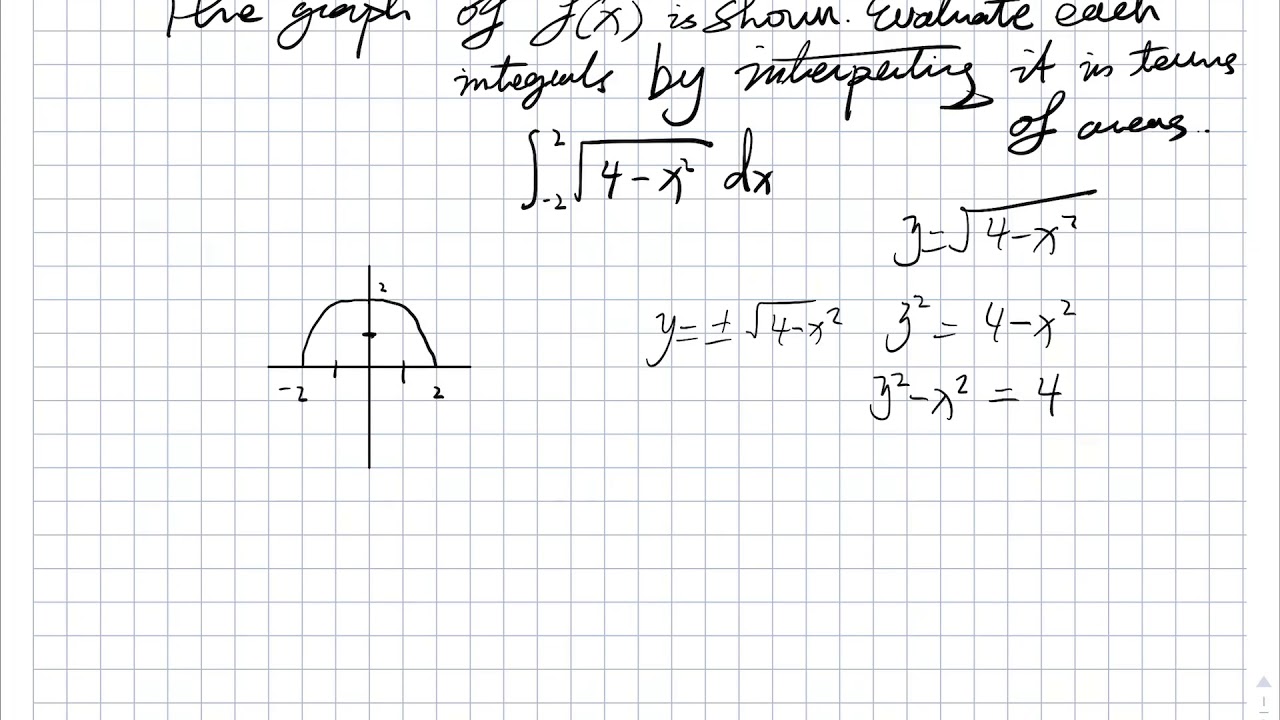 The graph of f(x) is shown. Evaluate each
integrals by interperting it in terms
of areas.
∫₋₂² √(4-x²) dx
y=√(4-x²)
2
y=±√(4-x²) y²= 4-x²
-2 2 y²-x² = 4
1